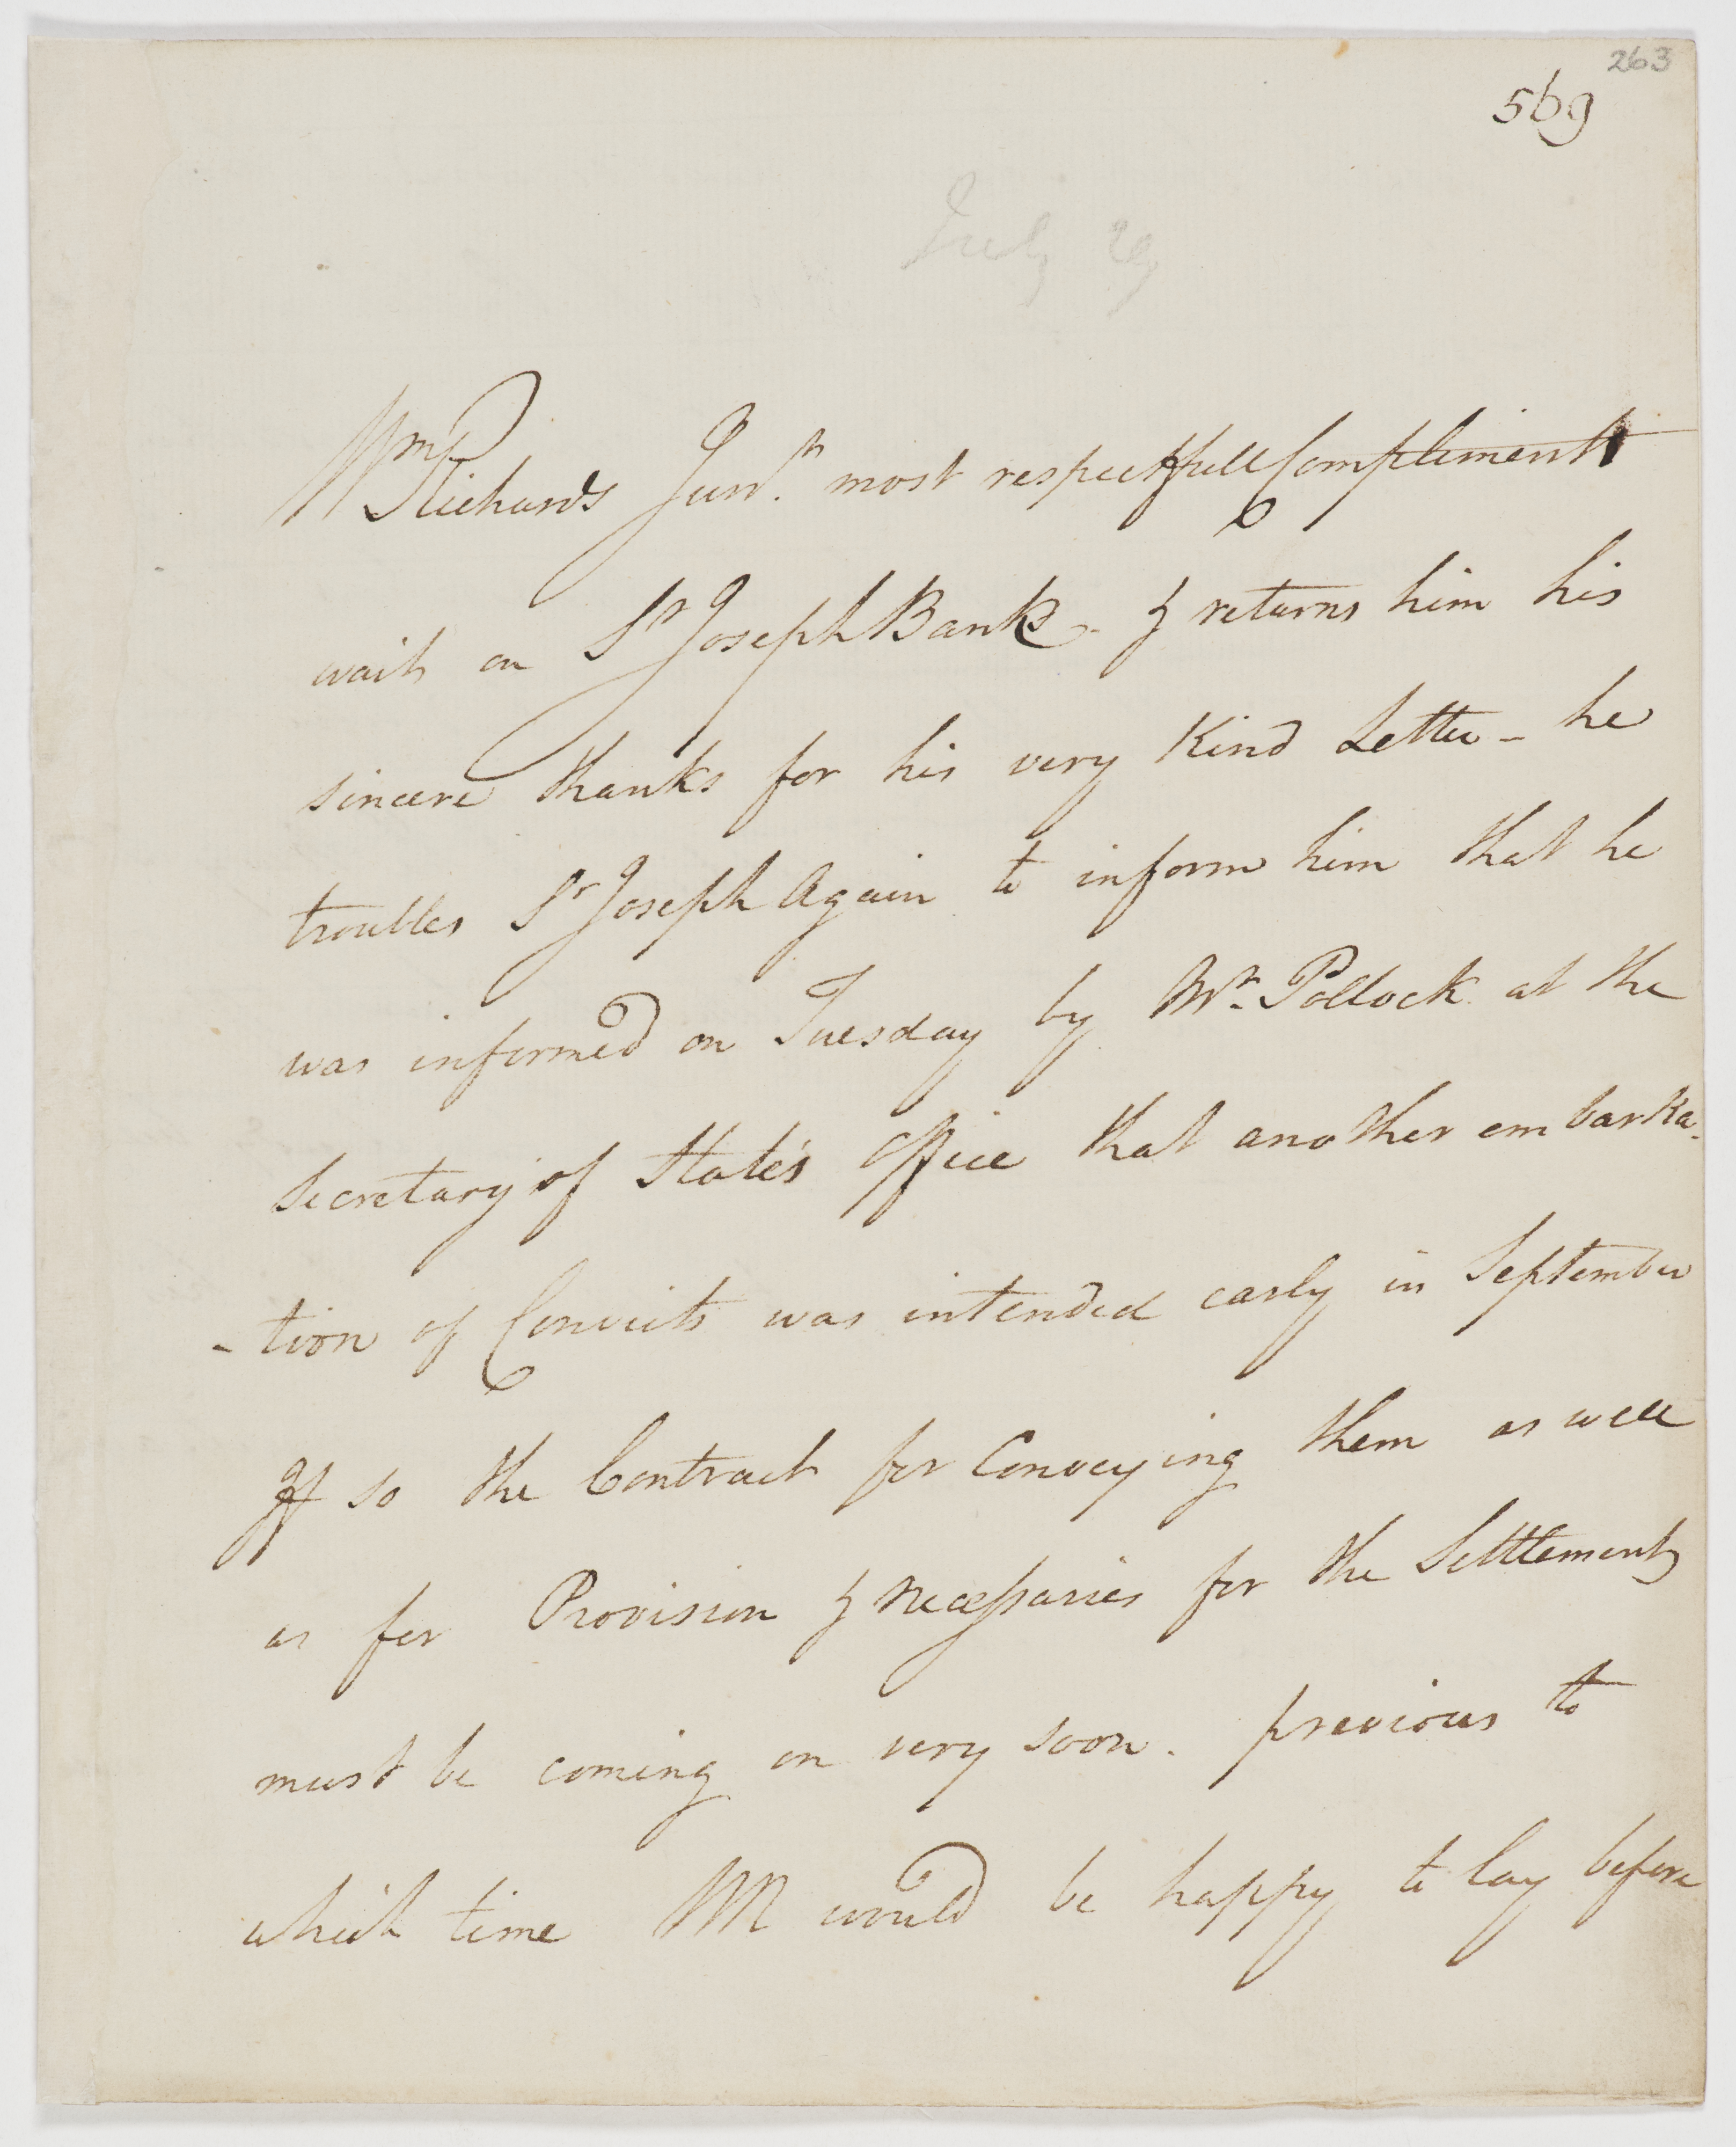 263
569
July 29
Wm Richards Junr. most respectfull Compliments
waits on Sr Joseph Banks - & returns him his
sincere thanks for his very Kind Letter - he
troubles Sr Joseph Again to inform him that he
was informed on Tuesday by Mr. Pollock at the
Secretary of State's Office that another embarka-
-tion of Convicts was intended early in September
If so the Contract for Conveying them as well
as for Provision & necessaries for the Settlements
must be coming on very soon. previous to
which time WR would be happy to lay before